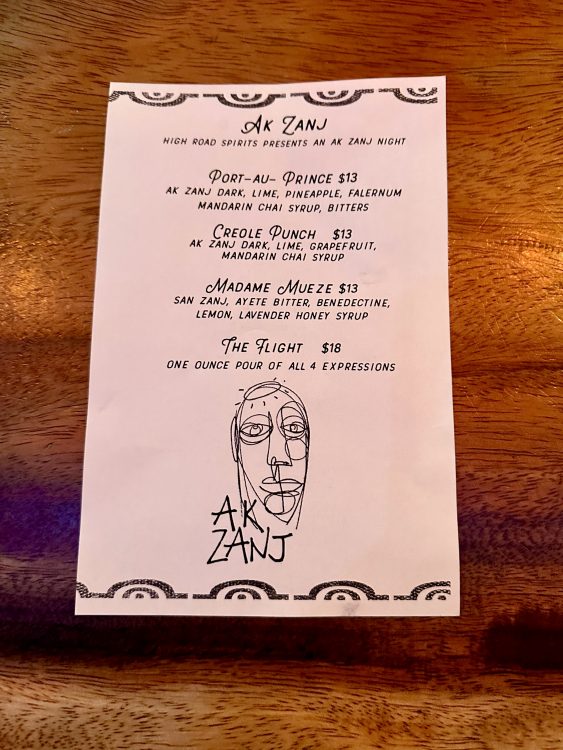 AK ZANJ
HIGH ROAD SPIRITS PRESENTS AN AK ZANJ NIGHT
PORT-AU- PRINCE $13
AK ZANJ DARK, LIME, PINEAPPLE, FALERNUM
MANDARIN CHAI SYRUP, BITTERS
CREOLE PUNCH $13
AK ZANJ DARK, LIME, GRAPEFRUIT,
MANDARIN CHAI SYRUP
MADAME MUEZE $13
SAN ZANJ, AYETE BITTER, BENEDECTINE,
LEMON, LAVENDER HONEY SYRUP
THE FLIGHT $18
ONE OUNCE POUR OF ALL 4 EXPRESSIONS
AK
ZANJ